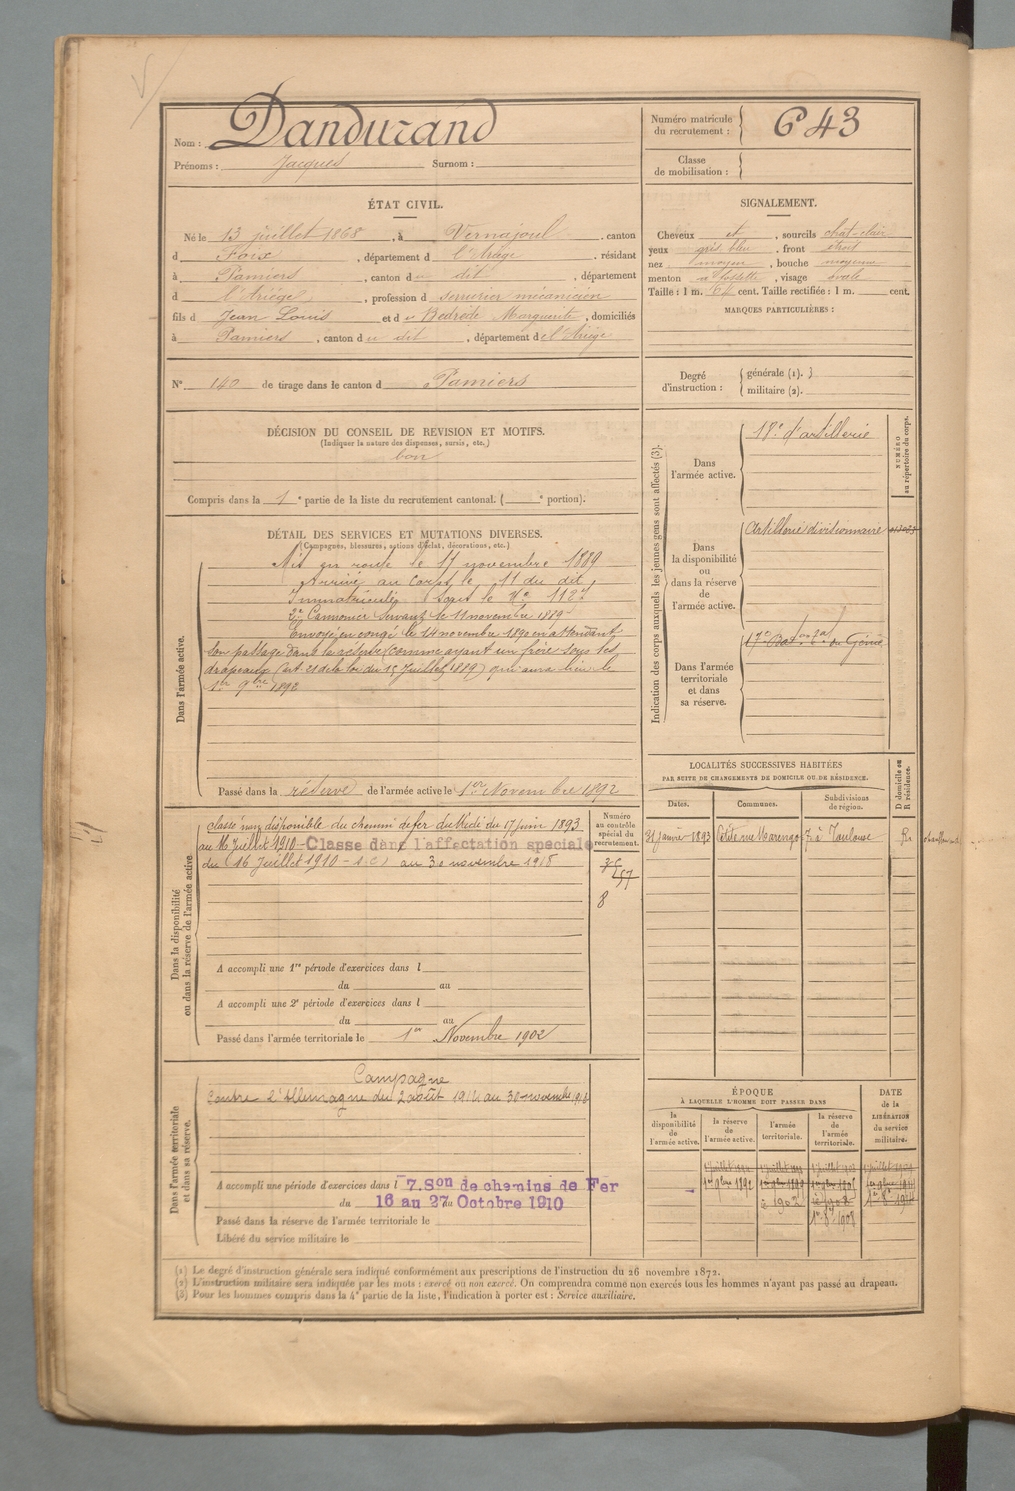 Nom : Dandurand
Prénoms : Jacques Surnom :
Numéro matricule du recrutement : 643
Classe de mobilisation :
ÉTAT CIVIL.
Né le 13 juillet 1868, à Vernajoul, canton
d Foix, département d l'Ariège, résidant
à Pamiers, canton du dit, département
d l'Ariège, profession d serrurier mécanicien
fils d Jean Louis et de Marguerite, domiciliés
à Pamiers, canton du dit, département de l'Ariège
SIGNALEMENT.
Cheveux et, sourcils chat-clair
yeux gris bleu, front étroit
nez moyen, bouche moyenne
menton à fossette, visage ovale
Taille : 1 m. 64 cent. Taille rectifiée : 1 m. cent.
MARQUES PARTICULIÈRES :
N° 140 de tirage dans le canton d Pamiers
Degré d'instruction : générale (1).
militaire (2).
DÉCISION DU CONSEIL DE REVISION ET MOTIFS.
(Indiquer la nature des dispenses, sursis, etc.)
bon
Compris dans la 1e partie de la liste du recrutement cantonal. ( e portion).
DÉTAIL DES SERVICES ET MUTATIONS DIVERSES.
(Campagnes, blessures, actions d'éclat, décorations, etc.)
Dans l'armée active.
Mis en route le 11 novembre 1889
Arrivé au corps le 11 du dit
Immatriculé sous le N°
2e Canonnier servant le 11 novembre 1889
Envoyé en congé le 14 novembre 1890 en attendant
son passage dans la réserve (comme ayant un frère sous les
drapeaux (art 21 de la loi du 15 Juillet 1889) qui aura lieu le
1er 9bre 1892
Passé dans la réserve de l'armée active le 1er Novembre 1892
Indication des corps auxquels les jeunes gens sont affectés (3).
NUMÉRO au répertoire du corps.
Dans l'armée active.
18e d'artillerie
Dans la disponibilité ou dans la réserve de l'armée active.
Artillerie divisionnaire
Dans l'armée territoriale et dans sa réserve.
17e Baton du Génie
LOCALITÉS SUCCESSIVES HABITÉES
PAR SUITE DE CHANGEMENTS DE DOMICILE OU DE RÉSIDENCE.
D domicile ou R résidence.
Dates. Communes. Subdivisions de région.
31 Janvier 1893 Petite rue Marengo 7 à Toulouse R
Dans la disponibilité ou dans la réserve de l'armée active
Numéro au contrôle spécial du recrutement.
Classé non disponible du chemin de fer du Midi du 17 juin 1893
au 16 Juillet 1910 - Classe dans l'affectation speciale
du (16 Juillet 1910 - ) au 30 novembre 1918
8
A accompli une 1re période d'exercices dans l
du au
A accompli une 2e période d'exercices dans l
du au
Passé dans l'armée territoriale le 1er Novembre 1902
Dans l'armée territoriale et dans sa réserve.
Campagne
Contre l'Allemagne du 2 août 1914 au 30 novembre 1918
A accompli une période d'exercices dans l 7.Son de chemins de Fer
du 16 au 27 Octobre 1910
Passé dans la réserve de l'armée territoriale le
Libéré du service militaire le
ÉPOQUE
À LAQUELLE L'HOMME DOIT PASSER DANS
la disponibilité de l'armée active.
la réserve de l'armée active.
l'armée territoriale.
la réserve de l'armée territoriale.
DATE de la LIBÉRATION du service militaire.
1er 9bre 1892
1902
(1) Le degré d'instruction générale sera indiqué conformément aux prescriptions de l'instruction du 26 novembre 1872.
(2) L'instruction militaire sera indiquée par les mots : exercé ou non exercé. On comprendra comme non exercés tous les hommes n'ayant pas passé au drapeau.
(3) Pour les hommes compris dans la 4e partie de la liste, l'indication à porter est : Service auxiliaire.